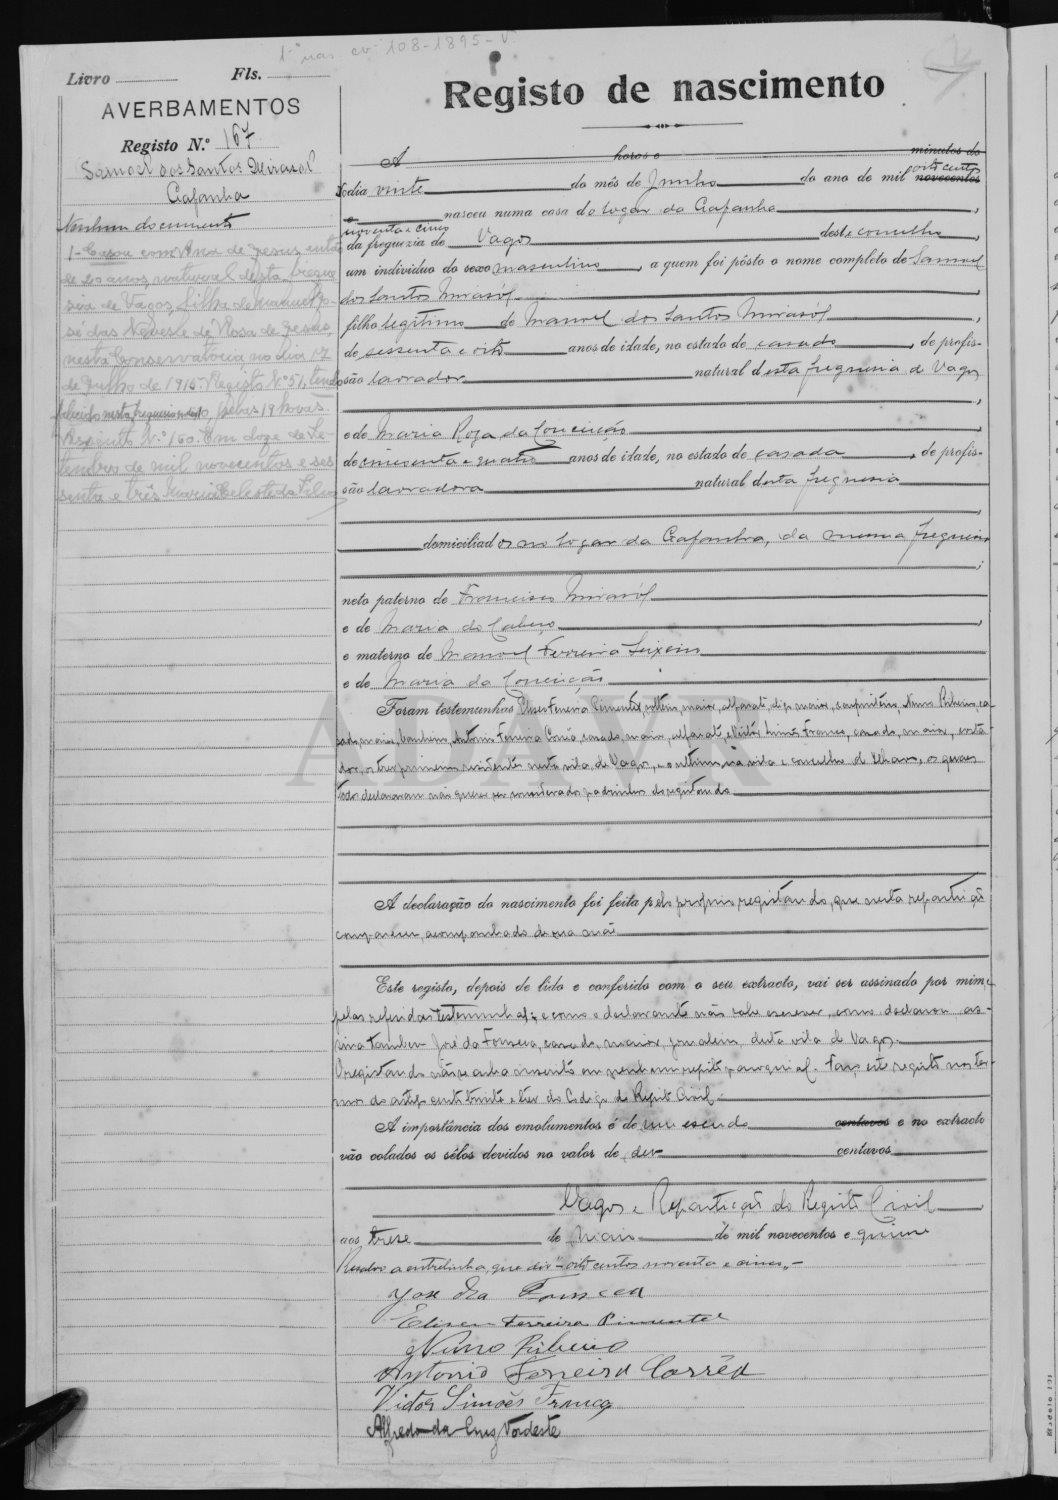 1º nas. cv. 108-1895-V.
Livro Fls.
AVERBAMENTOS
Registo N.º 167
Samuel dos Santos Mirasol
Gafanha
Nenhum documento
1-Casou com Ana de Jesus, então
de 20 anos, natural desta fregue-
sia de Vagos, filha de Manuel Jo-
sé das Neves e de Rosa de Jesus,
nesta Conservatória no dia 17
de Julho de 1915. Registo Nº 51, tendo
falecido nesta freguesia pelas 19 horas.
Assento N.º 160. Em doze de Se-
tembro de mil novecentos e ses-
senta e três Maria Celeste da Silva
Registo de nascimento
A horas e minutos do
No dia vinte do mês de Junho do ano de mil oito centos novecentos
e nasceu numa casa do lugar da Gafanha,
noventa e cinco
da freguezia de Vagos deste concelho,
um individuo do sexo masculino, a quem foi pôsto o nome completo de Samuel
dos Santos Mirasól,
filho legitimo de Manoel dos Santos Mirasól,
de sessenta e oito anos de idade, no estado de casado, de profis-
são lavrador natural desta freguesia de Vagos
e de Maria Roza da Conceição,
de cincoenta e quatro anos de idade, no estado de casada, de profis-
são lavradora natural desta freguesia
domiciliados no lugar da Gafanha, da mesma freguesia
neto paterno de Francisco Mirasól
e de Maria do Cabeço,
e materno de Manoel Ferreira Seixeiro
e de Maria da Conceição
Foram testemunhas Eliseu Ferreira Pimentel, solteiro, maior, alfaiate, digo maior, carpinteiro, Nuno Ribeiro, ca-
sado, maior, barbeiro, Antonio Ferreira Corrêa, casado, maior, alfaiate, e Victor Simões Franco, casado, maior,
os tres primeiros residentes nesta vila de Vagos, e o ultimo na vila e concelho de Ilhavo, os quaes
todos declararam não querer ser considerados padrinhos do registando
A declaração do nascimento foi feita pelo proprio registando, que nesta repartição
compareceu, acompanhado de sua mãe
Este registo, depois de lido e conferido com o seu extracto, vai ser assinado por mim e
pelas referidas testemunhas; e como o declarante não sabe escrever, como declarou as-
sina tambem José da Fonseca, casado, maior, jornaleiro, desta vila de Vagos.
O registando não se acha inscrito em nenhum registo paroquial. Faço este registo nos ter-
mos do artigo cento trinta e tres do Codigo do Registo Civil.
A importância dos emolumentos é de um escudo centavos e no extracto
vão colados os sêlos devidos no valor de dez centavos
Vagos e Repartição do Registo Civil
aos treze de Maio de mil novecentos e quinze
Resalvo a entrelinha, que diz "oito centos noventa e cinco,"-
Jose da Fonseca
Eliseu Ferreira Pimentel
Nuno Ribeiro
Antonio Ferreira Corrêa
Victor Simões Franco
Alfredo da Cruz Nordeste
ADAVR